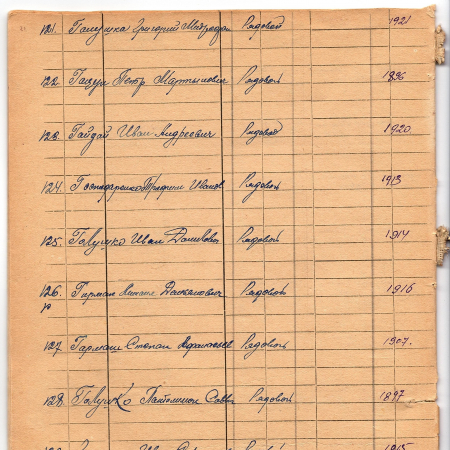 121. Галушка Григорий Митрофан Рядовой 1921
122. Гащук Петр Мартынович Рядовой 1896
123. Гайдай Иван Андреевич Рядовой 1920
124. Господаренко Трофим Иванов Рядовой 1913
125. Галушко Иван Данилович Рядовой 1914
126. Гармаш Данилович Рядовой 1916
127. Гармаш Степан Афанасьев Рядовой 1907.
128. Галушко Пантелимон Савв Рядовой 1897
Рядовой 1915